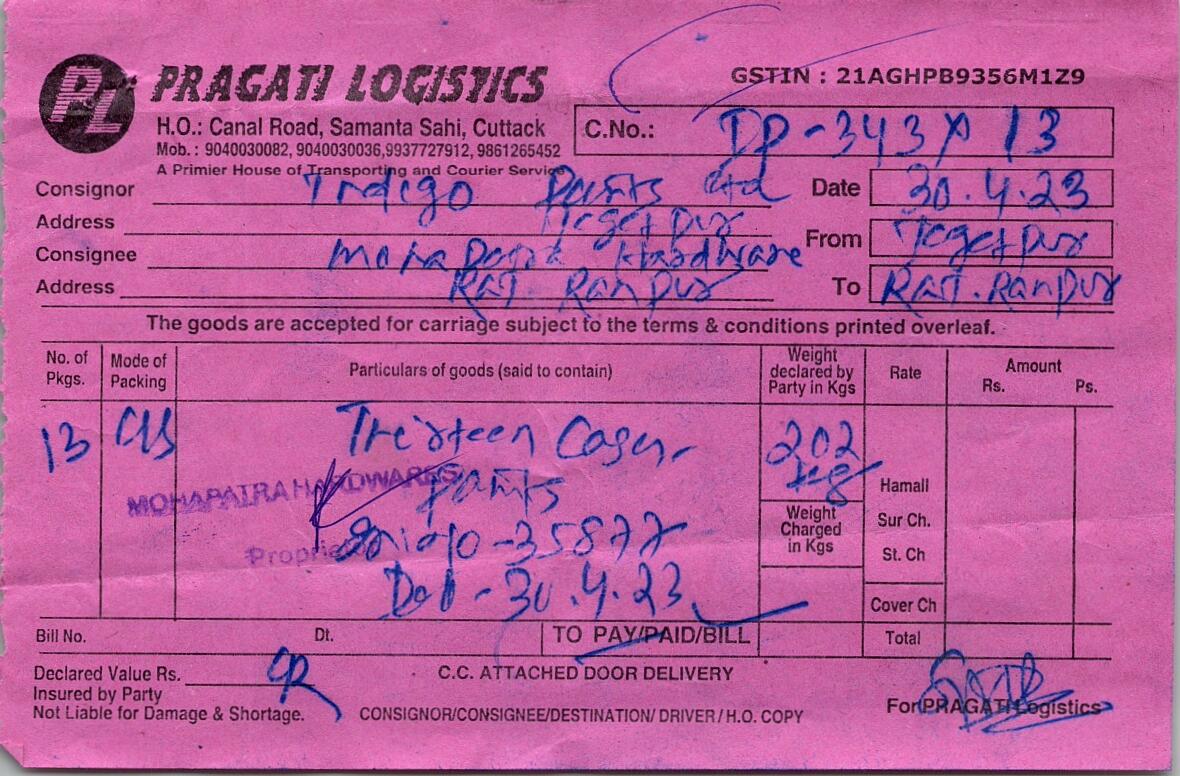 PL PRAGATI LOGISTICS
GSTIN : 21AGHPB9356M1Z9
H.O.: Canal Road, Samanta Sahi, Cuttack
Mob. : 9040030082, 9040030036,9937727912, 9861265452
A Primier House of Transporting and Courier Service
C.No.: DP-343 13
Consignor Indigo Paints Ltd
Date 30.4.23
Address Jagatpur
From Jagatpur
Consignee Mohapatra Hardware
Address Raj. Ranpur
To Raj. Ranpur
The goods are accepted for carriage subject to the terms & conditions printed overleaf.
No. of Pkgs. Mode of Packing Particulars of goods (said to contain) Weight declared by Party in Kgs Rate Amount Rs. Ps.
13 C/S Thirteen Cases 202 kg
paints
MOHAPATRA HARDWARES
Hamall
Weight Charged in Kgs
Sur Ch.
35877
St. Ch
30.4.23
Cover Ch
Bill No. Dt. TO PAY/PAID/BILL Total
Declared Value Rs.
C.C. ATTACHED DOOR DELIVERY
Insured by Party
Not Liable for Damage & Shortage.
CONSIGNOR/CONSIGNEE/DESTINATION/ DRIVER / H.O. COPY
For PRAGATI Logistics